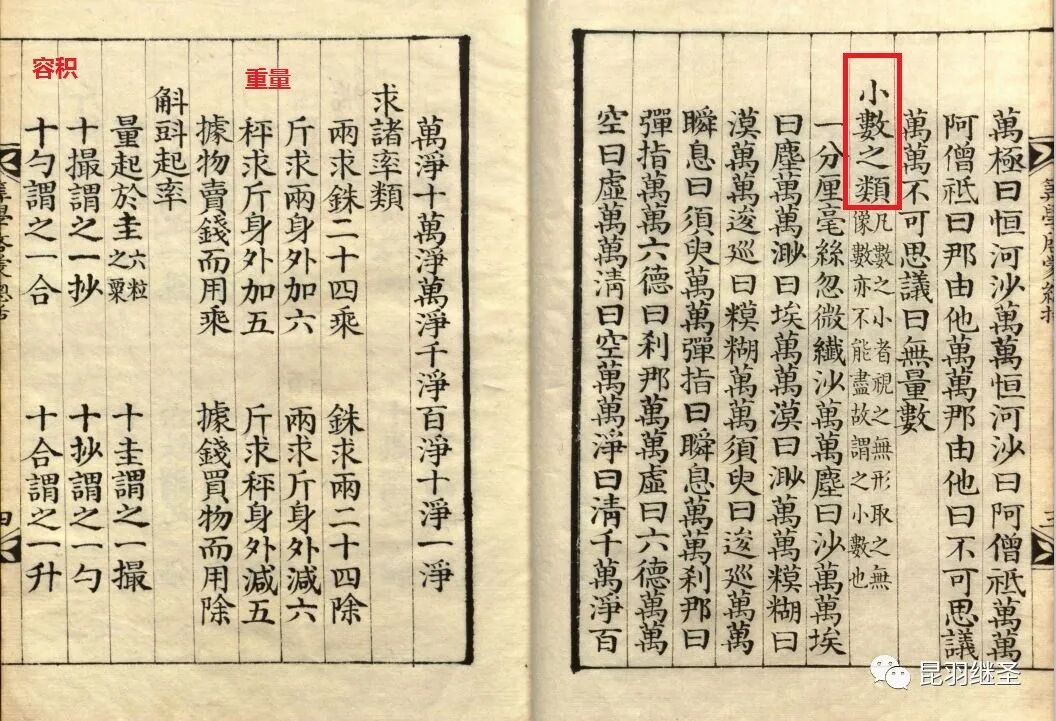 萬極曰恒河沙萬萬恒河沙曰阿僧祇萬萬
阿僧祇曰那由他萬萬那由他曰不可思議
萬萬不可思議曰無量數
小數之類
凡數之小者視之無形取之無
像數亦不能盡故謂之小數也
一分厘毫絲忽微纖沙萬萬塵曰沙萬萬埃
曰塵萬萬渺曰埃萬萬漠曰渺萬萬糢糊曰
漠萬萬逡巡曰糢糊萬萬須臾曰逡巡萬萬
瞬息曰須臾萬萬彈指曰瞬息萬萬刹那曰
彈指萬萬六德曰刹那萬萬虛曰六德萬萬
空曰虛萬萬清曰空萬萬淨曰清千萬淨百
萬淨十萬淨萬淨千淨百淨十淨一淨
求諸率類
兩求銖二十四乘 銖求兩二十四除
斤求兩身外加六 兩求斤身外減六
重量
秤求斤身外加五 斤求秤身外減五
據物賣錢而用乘 據錢買物而用除
斛㪷起率
量起於圭六粒之粟 十圭謂之一撮
容积
十撮謂之一抄 十抄謂之一勺
十勺謂之一合 十合謂之一升
昆羽继圣